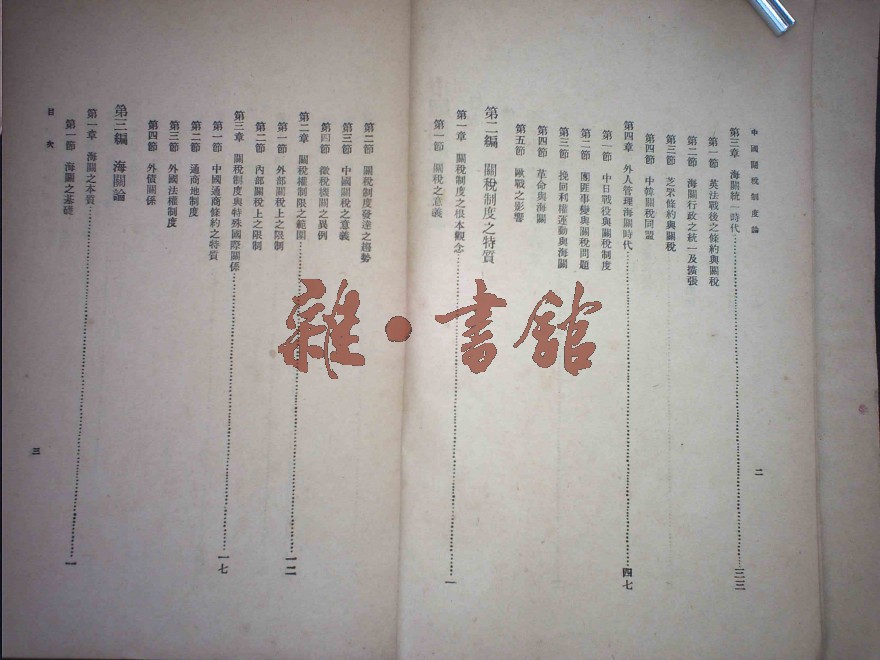 中國關稅制度論
二
第三章 海關統一時代……三三
第一節 英法戰後之條約與關稅
第二節 海關行政之統一及擴張
第三節 芝罘條約與關稅
第四節 中韓關稅同盟
第四章 外人管理海關時代……四七
第一節 中日戰役與關稅制度
第二節 團匪事變與關稅問題
第三節 挽回利權運動與海關
第四節 革命與海關
第五節 歐戰之影響
第二編 關稅制度之特質
第一章 關稅制度之根本觀念……一
第一節 關稅之意義
第二節 關稅制度發達之趨勢
第三節 中國關稅之意義
第四節 徵稅機關之異例
第二章 關稅權限之範圍……一二
第一節 外部關稅上之限制
第二節 內部關稅上之限制
第三章 關稅制度與特殊國際關係……一七
第一節 中國通商條約之特質
第二節 通商地制度
第三節 外國法權制度
第四節 外債關係
第三編 海關論
第一章 海關之本質……一
第一節 海關之基礎
目次
三
雜·書館